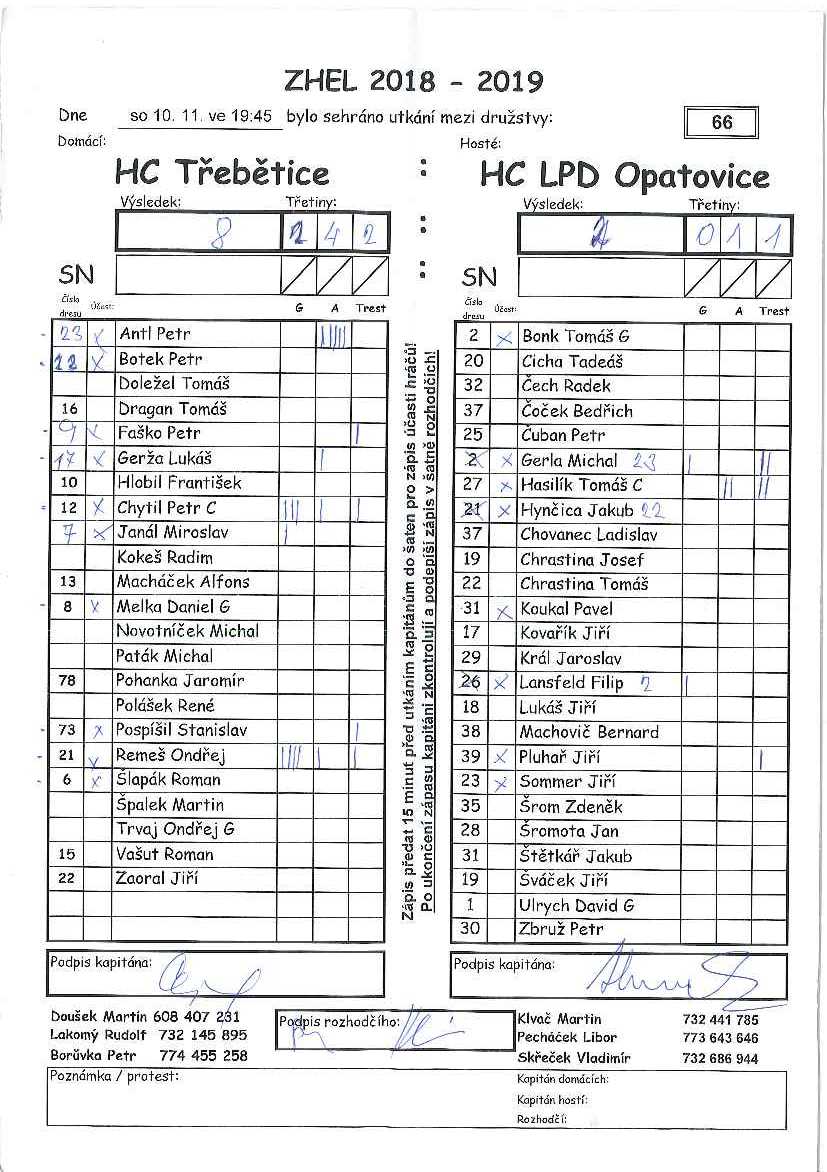 ZHEL 2018 - 2019
Dne so 10. 11. ve 19:45 bylo sehráno utkání mezi družstvy: 66
Domácí: Hosté:
HC Třebětice : HC LPD Opatovice
Výsledek: Třetiny: Výsledek: Třetiny:
8 2 4 2 : 2 0 1 1
SN : SN
číslo dresu Účast: G A Trest
23 x Antl Petr |||||
12 x Botek Petr
Doležel Tomáš
16 Dragan Tomáš
9 x Faško Petr |
17 x Gerža Lukáš |
10 Hlobil František
12 x Chytil Petr C ||| | |
7 x Janál Miroslav |
Kokeš Radim
13 Macháček Alfons
8 x Melka Daniel G
Novotníček Michal
Paták Michal
78 Pohanka Jaromír
Polášek René
73 x Pospíšil Stanislav |
21 x Remeš Ondřej |||| | |
6 x Šlapák Roman
Špalek Martin
Trvaj Ondřej G
15 Vašut Roman
22 Zaoral Jiří
Zápis předat 15 minut před utkáním kapitánům do šaten pro zápis účasti hráčů!
Po ukončení zápasu kapitáni zkontrolují a podepíší zápis v šatně rozhodčích!
číslo dresu Účast: G A Trest
2 x Bonk Tomáš G
20 Cicha Tadeáš
32 Čech Radek
37 Čoček Bedřich
25 Čuban Petr
2 x Gerla Michal 23 | ||
27 x Hasilík Tomáš C || ||
21 x Hynčica Jakub 22
37 Chovanec Ladislav
19 Chrastina Josef
22 Chrastina Tomáš
31 x Koukal Pavel
17 Kovařík Jiří
29 Král Jaroslav
26 x Lansfeld Filip 2 |
18 Lukáš Jiří
38 Machovič Bernard
39 x Pluhař Jiří |
23 x Sommer Jiří
35 Šrom Zdeněk
28 Šromota Jan
31 Štětkář Jakub
19 Šváček Jiří
1 Ulrych David G
30 Zbruž Petr
Podpis kapitána: Podpis kapitána:
Doušek Martin 608 407 231
Lakomý Rudolf 732 145 895
Borůvka Petr 774 455 258
Podpis rozhodčího:
Klvač Martin 732 441 785
Pecháček Libor 773 643 646
Skřeček Vladimír 732 686 944
Poznámka / protest:
Kapitán domácích:
Kapitán hostí:
Rozhodčí: